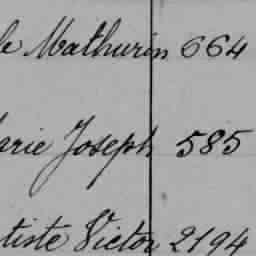 le Mathurin 664
arie Joseph 585
tiste Victor 2194